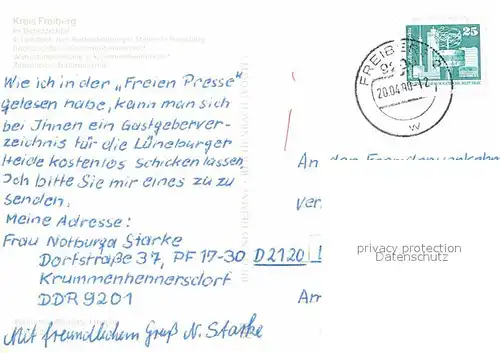 Kreis Freiberg
Wie ich in der „Freien Presse"
gelesen habe, kann man sich
bei Ihnen ein Gastgeberver-
zeichnis für die Lüneburger
Heide kostenlos schicken lassen.
Ich bitte Sie mir eines zu zu
senden.
Meine Adresse:
Frau Notburga Starke
Dorfstraße 37, PF 17-30
Krummenhennersdorf
DDR 9201
Mit freundlichem Gruß N. Starke
FREIBERG
20.04.90-12
w
25
An den Fremdenverkehrs
ver
D2120
An
privacy protection
Datenschutz